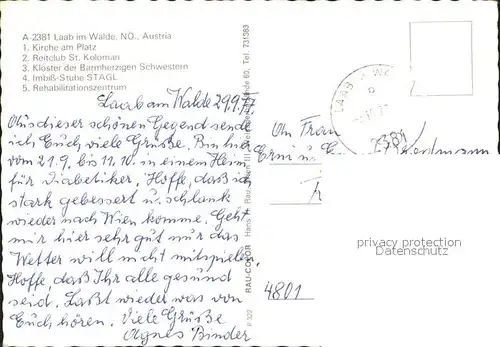 A-2381 Laab im Walde, NÖ., Austria
1. Kirche am Platz
2. Reitclub St. Koloman
3. Kloster der Barmherzigen Schwestern
4. Imbiß-Stube STAGL
5. Rehabilitationszentrum
Laab am Walde 29.9.77
Aus dieser schönen Gegend sende
ich Euch viele Grüße. Bin hier
vom 21.9. bis 11.10. in einem Heim
für Diabetiker. Hoffe, daß ich
stark gebessert u. schlank
wieder nach Wien komme. Geht
mir hier sehr gut nur das
Wetter will nicht mitspielen.
Hoffe, daß Ihr alle gesund
seid. Laßt wieder was von
Euch hören. Viele Grüße
Agnes Binder
P 322 RAU-COLOR Hans Rau, Wien III Walde 60, Tel. 731383
LAAB
2381
An Frau
Erni u.
4801
privacy protection
Datenschutz